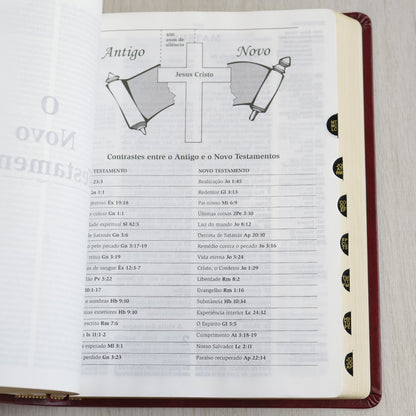 400
anos de
silêncio
Antigo
Novo
Jesus Cristo
Contrastes entre o Antigo e o Novo Testamentos
TESTAMENTO NOVO TESTAMENTO
23:3 Realização Jo 1:45
Gn 1:1 Redentor Gl 3:13
Êx 19:18 Paz nosso Mt 6:9
Gn 1:1 Últimas coisas 2Pe 3:10
dade espiritual Sl 82:5 Luz do mundo Jo 8:12
de Satanás Gn 3:6 Derrota de Satanás Ap 20:10
do pelo pecado Gn 3:17-19 Remédio contra o pecado Jo 3:16
reina Gn 3:19 Vida eterna Jo 5:24
de sangue Êx 12:3-7 Cristo, o Cordeiro Jo 1:29
Pv 5:22 Liberdade Rm 8:2
Evangelho Rm 1:16
e sombras Hb 9:10 Substância Hb 9:10
exteriores Hb 9:10 Experiência interior Lc 24:32
escrito Rm 7:6 O Espírito Gl 5:5
Is 11:1-2 Cumprimento At 3:18-19
esperado Ml 3:1 Nosso Salvador Lc 2:11
perdido Gn 3:23 Paraíso recuperado Ap 22:14
O
Novo
Testamento